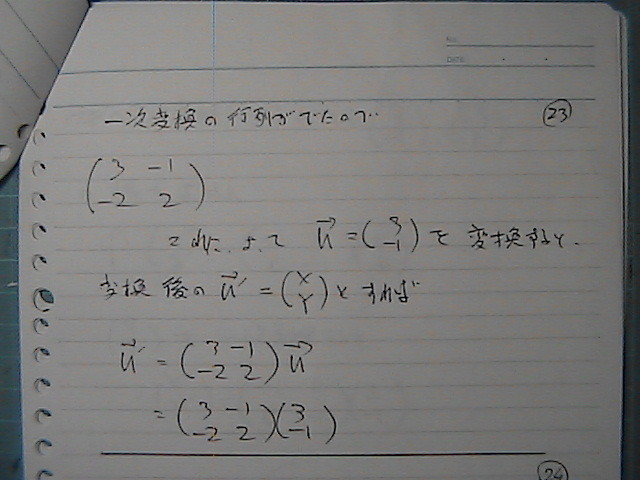 No.
DATE
一次変換の行列がでたので… ㉓
(3 -1
-2 2)
これによって u→ = (3 -1) を変換すると、
変換後の u→' = (X Y) とすれば
u→' = (3 -1 -2 2) u→
= (3 -1 -2 2)(3 -1)
㉔